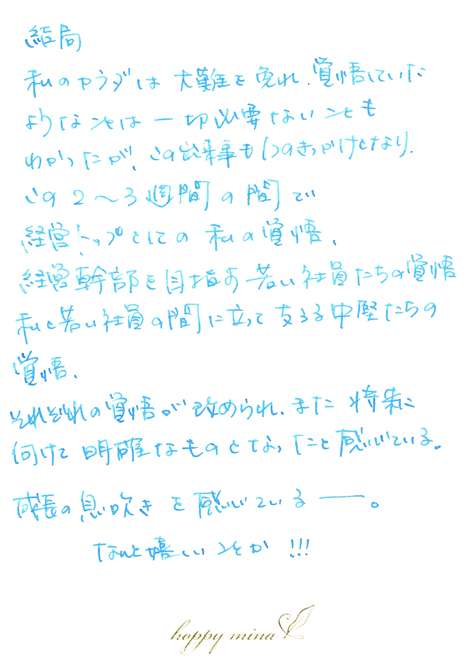 結局
私のカラダは大難を免れ、覚悟していた
ようなことは一切必要ないことも
わかったが、この出来事も1つのきっかけとなり、
この2〜3週間の間で
経営トップとしての私の覚悟、
経営幹部を目指す若い社員たちの覚悟
私と若い社員の間に立って支える中堅たちの
覚悟、
それぞれの覚悟が改められ、また将来に
向けて明確なものとなったと感じている。
成長の息吹きを感じている――。
なんと嬉しいことか!!!
happy mina